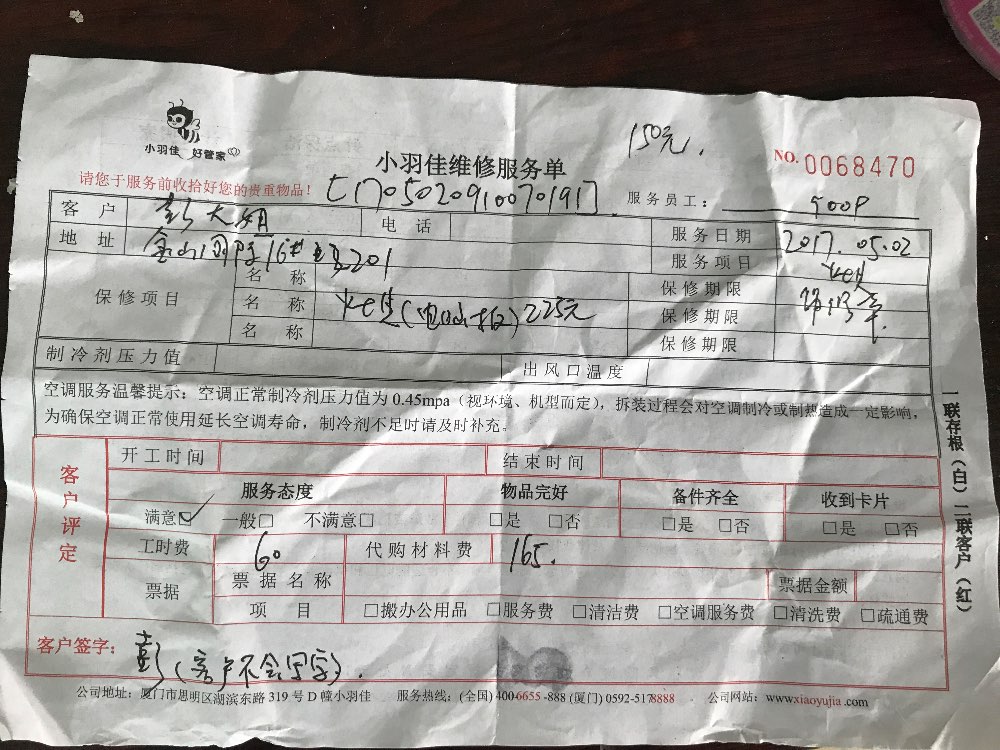 小羽佳 好管家
小羽佳维修服务单
150元.
NO. 0068470
请您于服务前收拾好您的贵重物品!
[1705020910070191]
服务员工:
客户 彭大姐 电话
服务日期 2017.05.02
地址
服务项目
保修项目
名称
保修期限
名称 225元
保修期限
名称
保修期限
制冷剂压力值 出风口温度
空调服务温馨提示:空调正常制冷剂压力值为0.45mpa(视环境、机型而定),拆装过程会对空调制冷或制热造成一定影响,
为确保空调正常使用延长空调寿命,制冷剂不足时请及时补充。
一联存根(白)二联客户(红)
客户评定
开工时间 结束时间
服务态度 物品完好 备件齐全 收到卡片
满意☑ 一般□ 不满意□ □是 □否 □是 □否 □是 □否
工时费 60 代购材料费 165.
票据 票据名称 票据金额
项目 □搬办公用品 □服务费 □清洁费 □空调服务费 □清洗费 □疏通费
客户签字: 彭(客户不会写字).
公司地址:厦门市思明区湖滨东路319号D幢小羽佳 服务热线:(全国)400-6655-888(厦门)0592-5178888 公司网站:www.xiaoyujia.com